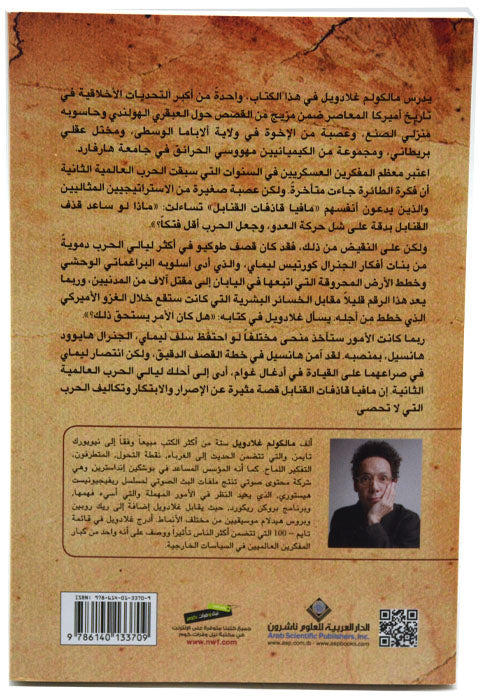 يدرس مالكولم غلادويل في هذا الكتاب، واحدةً من أكبر التحديات الأخلاقية في
تاريخ أميركا المعاصر ضمن مزيج من القصص حول العبقري الهولندي وحاسوبه
منزلي الصنع، وعصبة من الإخوة في ولاية ألاباما الوسطى، ومختل عقلي
بريطاني، ومجموعة من الكيميائيين مهووسي الحرائق في جامعة هارفارد.
اعتبر معظم المفكرين العسكريين في السنوات التي سبقت الحرب العالمية الثانية
أن فكرة الطائرة جاءت متأخرةً. ولكن عصبة صغيرة من الاستراتيجيين المثاليين
والذين يدعون أنفسهم «مافيا قاذفات القنابل» تساءلت: «ماذا لو ساعد قذف
القنابل بدقة على شل حركة العدو، وجعل الحرب أقل فتكاً؟».
ولكن على النقيض من ذلك، فقد كان قصف طوكيو في أكثر ليالي الحرب دمويةً
من بنات أفكار الجنرال كورتيس ليماي، والذي أدى أسلوبه البراغماتي الوحشي
وخطط الأرض المحروقة التي اتبعها في اليابان إلى مقتل آلاف من المدنيين، وربما
يعد هذا الرقم قليلاً مقابل الخسائر البشرية التي كانت ستقع خلال الغزو الأميركي
الذي خطط من أجله. يسأل غلادويل في كتابه: «هل كان الأمر يستحق ذلك؟».
ربما كانت الأمور ستأخذ منحى مختلفاً لو احتفظ سلف ليماي، الجنرال هايوود
هانسيل، بمنصبه. لقد آمن هانسيل في خطة القصف الدقيق، ولكن انتصار ليماي
في صراعهما على القيادة في أدغال غوام، أدى إلى أحلك ليالي الحرب العالمية
الثانية. إن مافيا قاذفات القنابل قصة مثيرة عن الإصرار والابتكار وتكاليف الحرب
التي لا تحصى.
ألف مالكولم غلادويل ستة من أكثر الكتب مبيعاً وفقاً إلى نيويورك
تايمز، والتي تتضمن الحديث إلى الغرباء، نقطة التحول، المتطرفون،
التفكير اللماح. كما أنه المؤسس المساعد في بوشكين إنداسترين وهي
شركة محتوى صوتي تنتج ملفات البث الصوتي لمسلسل ريفيجيونيست
هيستوري، الذي يعيد النظر في الأمور المهملة والتي أسيء فهمها،
وبرنامج بروكن ريكورد، حيث يقابل غلادويل إضافة إلى ريك روبين
وبروس هيدلام موسيقيين من مختلف الأنماط. أدرج غلادويل في قائمة
تايم – 100 التي تتضمن أكثر الناس تأثيراً ووصف على أنه واحد من كبار
المفكرين العالميين في السياسات الخارجية.
ISBN: 978-614-01-3370-9
9 786140 133709
نيل وفرات.كوم
جميع كتبنا متوفرة على الإنترنت
في مكتبة نيل وفرات.كوم
www.nwf.com
الدار العربية للعلوم ناشرون
Arab Scientific Publishers, Inc.
www.asp.com.lb - www.aspbooks.com